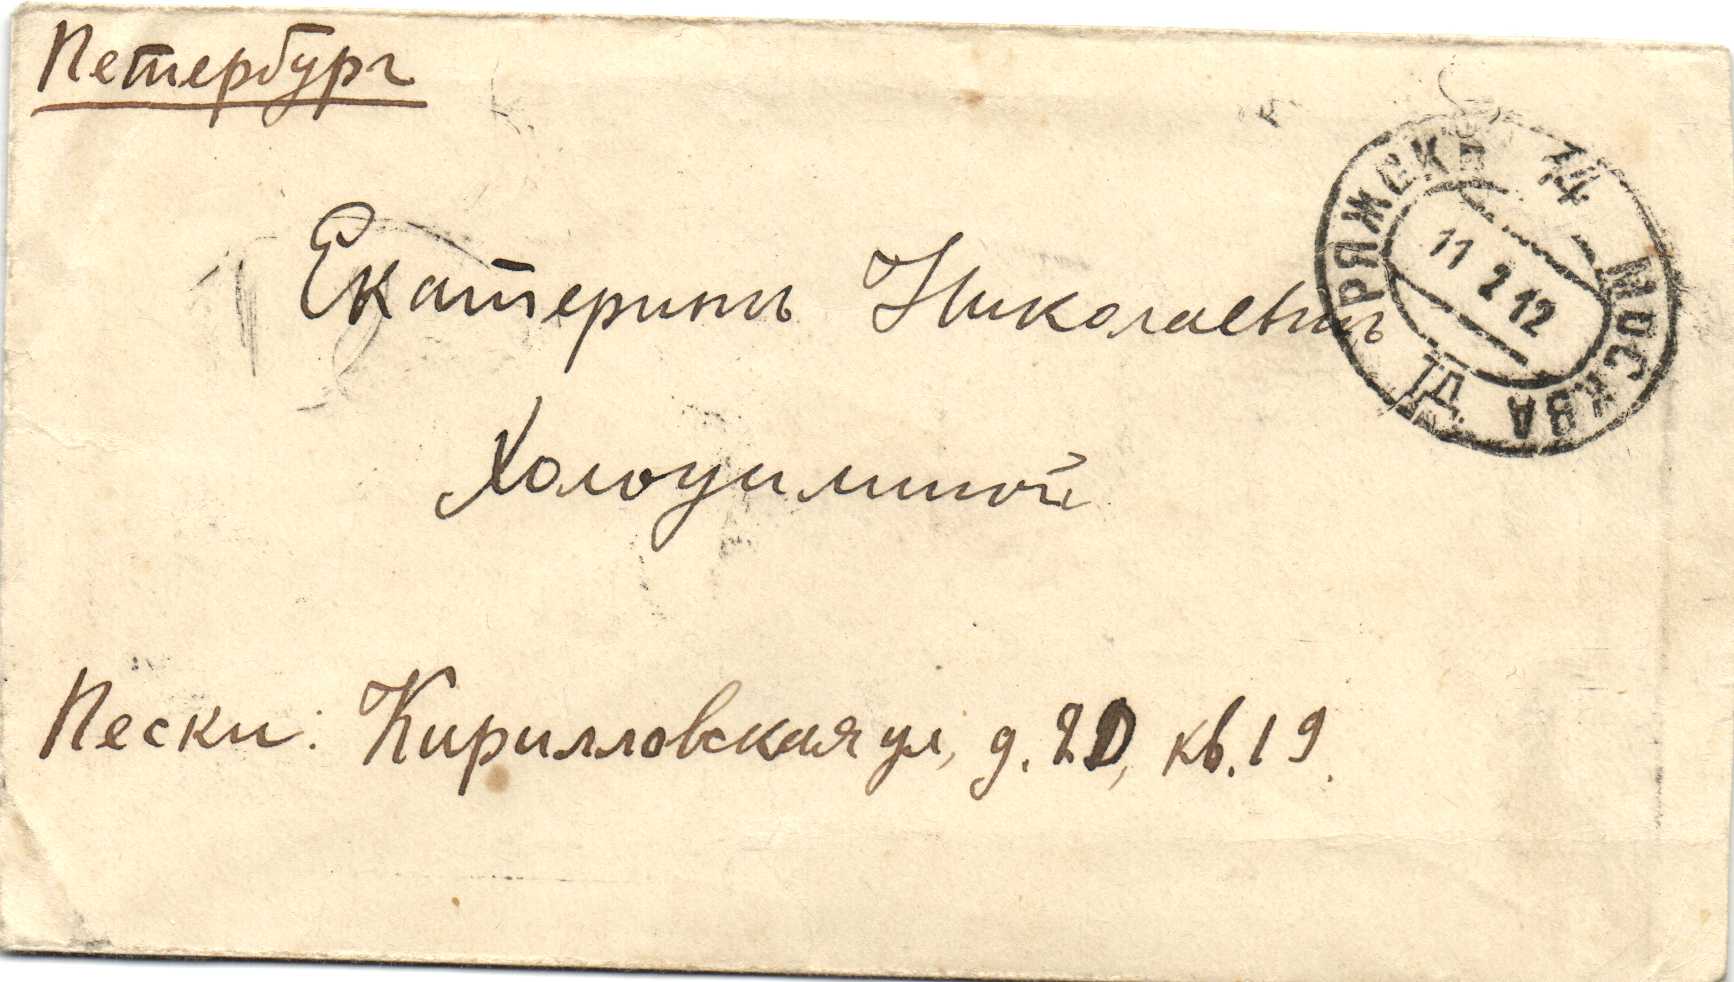 Петербург
Екатеринѣ Николаевнѣ
Холодилиной
Пески: Кирилловская ул, д. 20, кв. 19.
РЯЖСКЪ МОСКВА
11 2 12